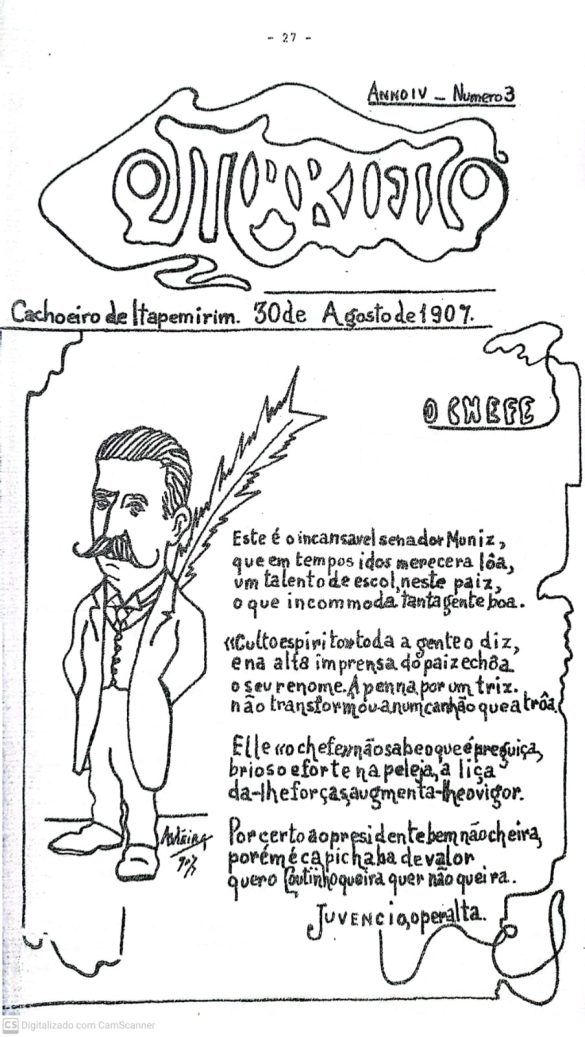 - 27 -
ANNO IV - Numero 3
O MARTELLO
Cachoeiro de Itapemirim. 30 de Agosto de 1907.
O CHEFE
Este é o incansavel senador Muniz,
que em tempos idos merecera lôa,
um talento de escol, neste paiz,
o que incommoda tanta gente boa.
«Culto espirito» toda a gente o diz,
e na alta imprensa do paiz echôa
o seu renome. A penna, por um triz.
não transformou-a num canhão que atrôa.
Elle «o chefe» não sabe o que é preguiça,
brioso e forte na peleja, a liça
da-lhe forças, augmenta-lhe o vigor.
Por certo ao presidente bem não cheira,
porém é capichaba de valor
quero Coutinho queira quer não queira.
JUVENCIO, o peralta.
907
CS Digitalizado com CamScanner